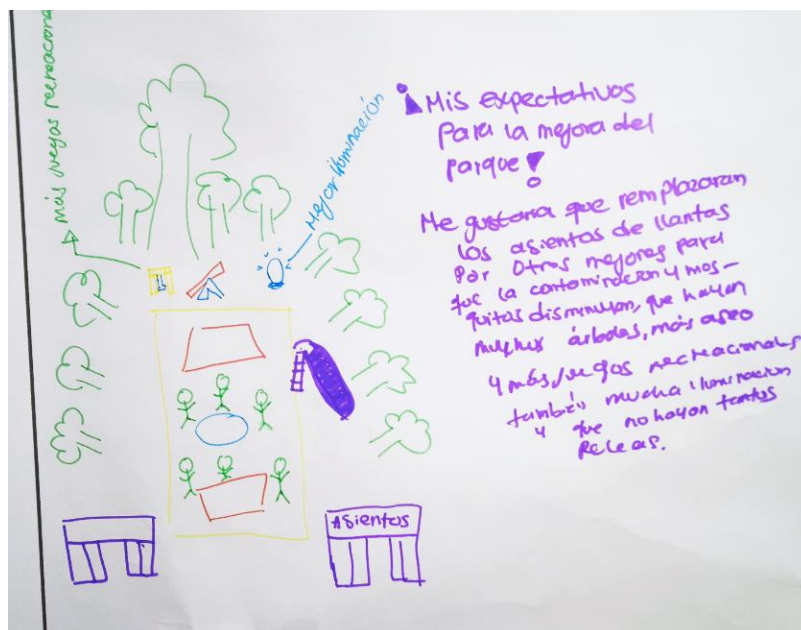 más juegos recreaciona
Mejor iluminación
¡Mis expectativos
Para la mejora del
parque!
Me gustaria que remplazaran
los asientos de llantas
por otros mejores para
que la contaminacion y mos-
quitos disminuyan, que hayan
muchos árboles, más aseo
y más juegos recreacionales
también mucha iluminacion
y que no hayan tantas
Peleas.
Asientos